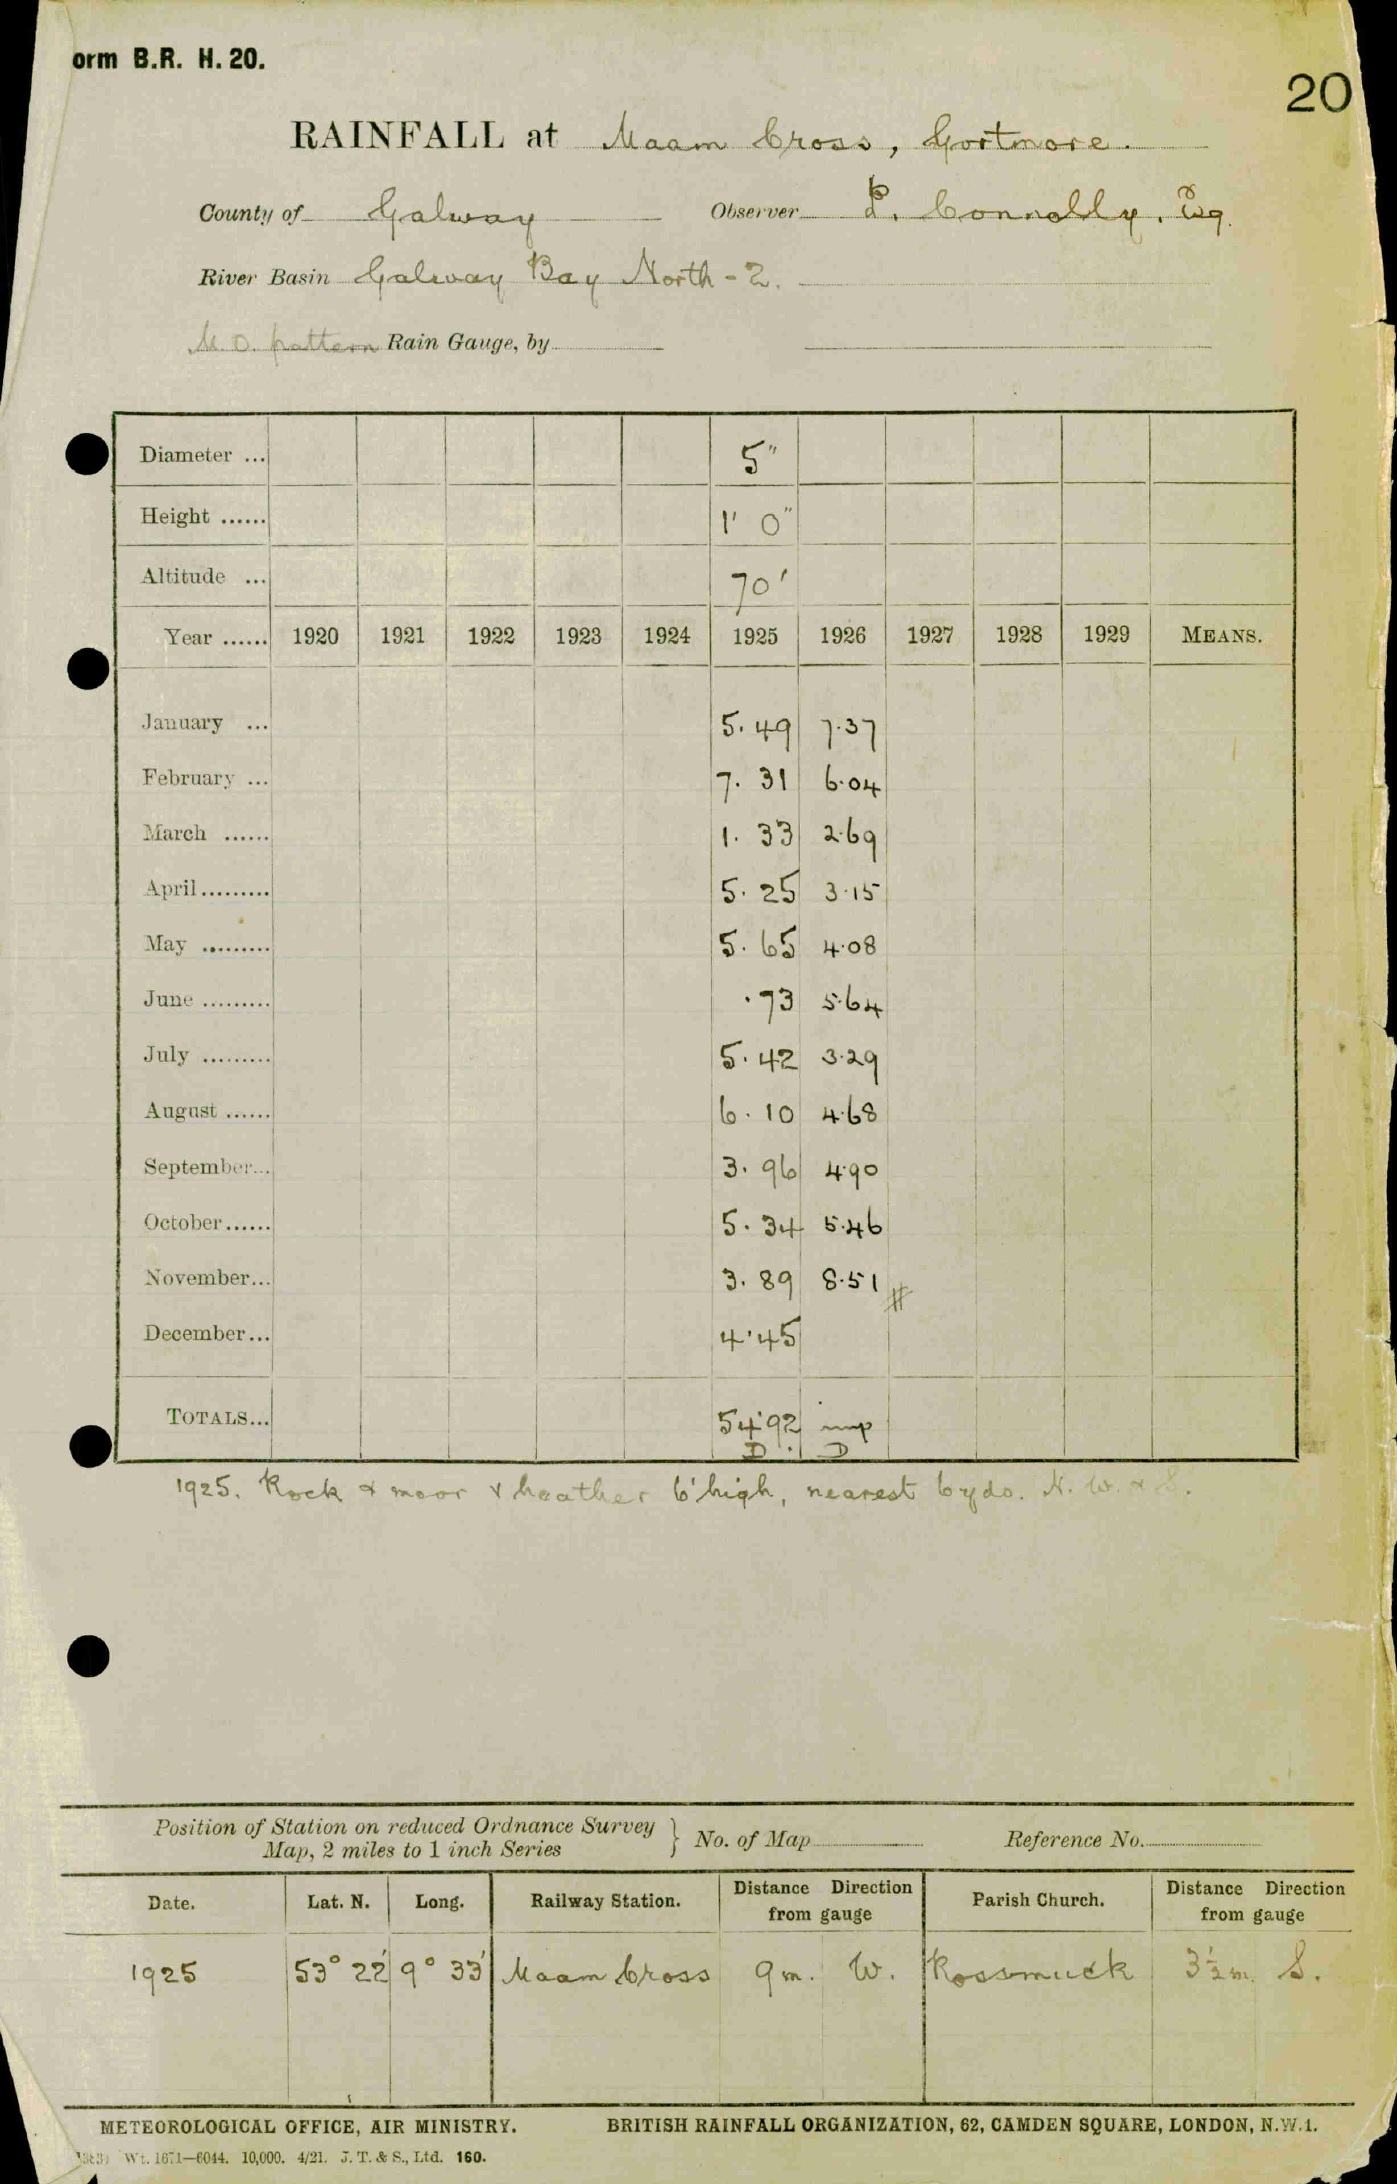 orm B.R. H. 20.
20
RAINFALL at Maam Cross, Gortmore.
County of Galway Observer P. Connolly, Esq.
River Basin Galway Bay North - 2.
M.O. pattern Rain Gauge, by
Diameter ... 5"
Height ...... 1' 0"
Altitude ... 70'
Year ...... 1920 1921 1922 1923 1924 1925 1926 1927 1928 1929 MEANS.
January ... 5.49 7.37
February ... 7.31 6.04
March ...... 1.33 2.69
April ......... 5.25 3.15
May ......... 5.65 4.08
June ......... .73 5.64
July ......... 5.42 3.29
August ...... 6.10 4.68
September... 3.96 4.90
October...... 5.34 5.46
November... 3.89 8.51 #
December... 4.45
TOTALS... 54.92 imp
D. D
1925. Rock & moor & heather 6' high, nearest 6 yds. N. W. & S.
Position of Station on reduced Ordnance Survey
Map, 2 miles to 1 inch Series } No. of Map Reference No.
Date. Lat. N. Long. Railway Station. Distance Direction from gauge Parish Church. Distance Direction from gauge
1925 53° 22' 9° 33' Maam Cross 9 m. W. Rossmuck 3½ m. S.
METEOROLOGICAL OFFICE, AIR MINISTRY. BRITISH RAINFALL ORGANIZATION, 62, CAMDEN SQUARE, LONDON, N.W.1.
Wt. 1671—6044. 10,000. 4/21. J. T. & S., Ltd. 160.